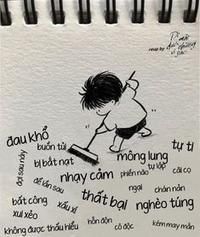 đau khổ
buồn tủi
tự ti
đợi sau này
bị bắt nạt
mông lung
để lần sau
nhạy cảm
phiền não
tự lập
cãi cọ
bất công
xấu xí
thất bại
ngại
chán nản
xui xẻo
nghèo túng
hỗn độn
không được thấu hiểu
cô độc
kém may mắn